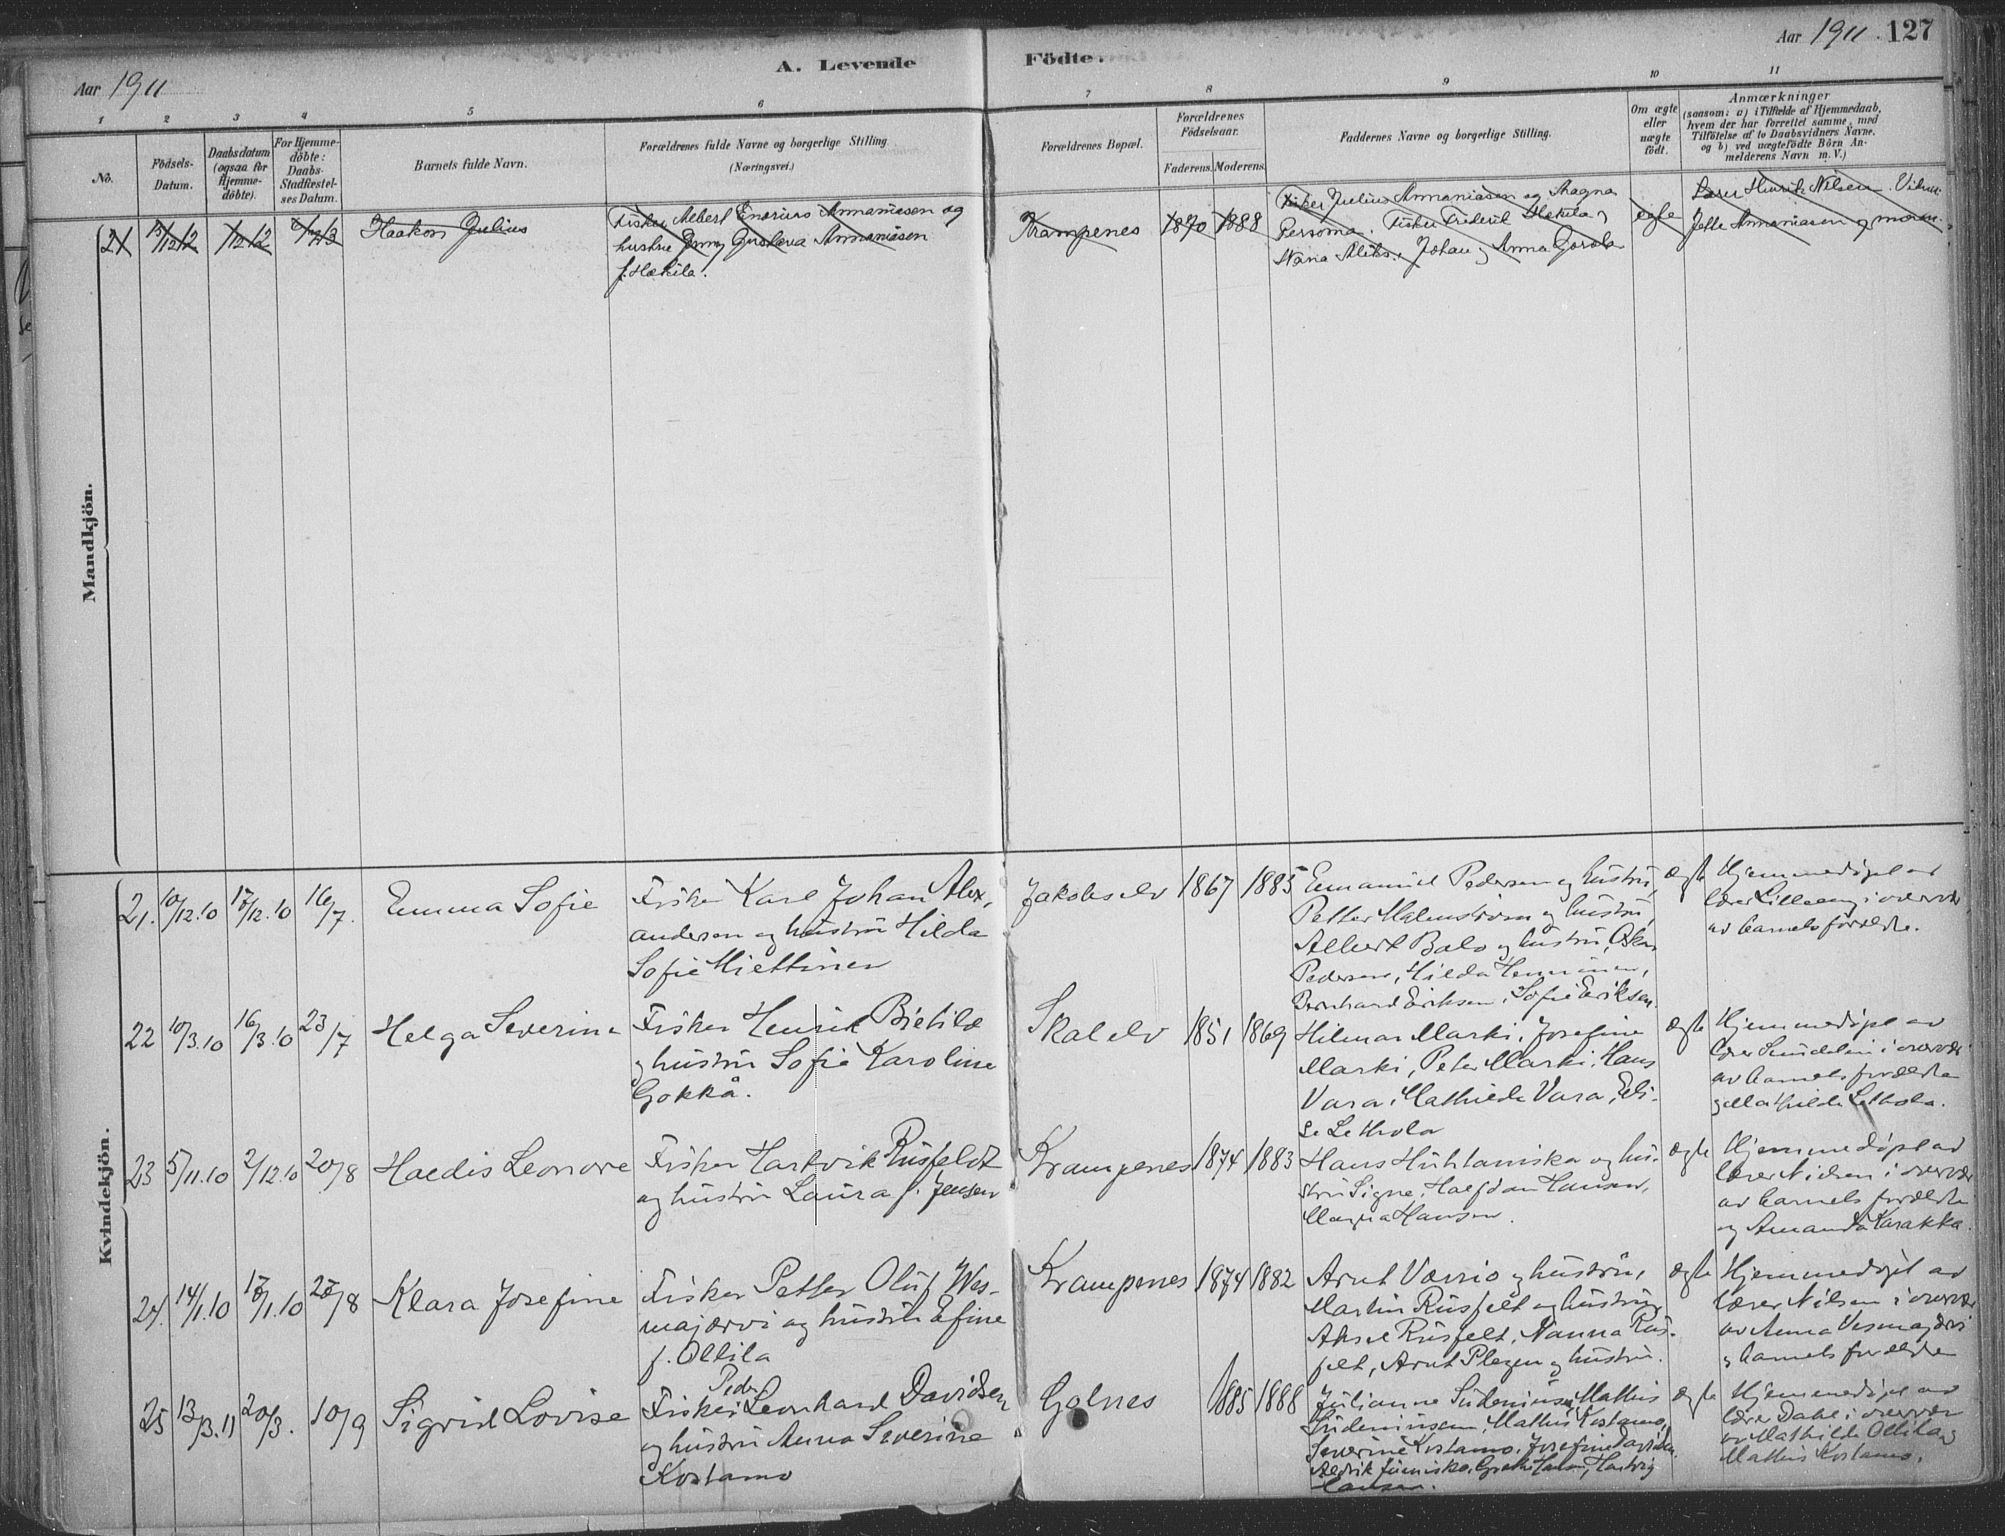 Aar 1911
A. Levende
Födte.
Aar 1911. 127
1 2 3 4 5 6 7 8 9 10 11
No.
Födsels-
Datum.
Daabsdatum
(ogsaa for
Hjemme-
döbte).
For Hjemme-
döbte:
Daabs-
Stadfæstel-
ses Datum.
Barnets fulde Navn.
Forældrenes fulde Navne og borgerlige Stilling
(Næringsvei.)
Forældrenes Bopæl.
Forældrenes
Födselsaar.
Faderens. Moderens.
Faddernes Navne og borgerlige Stilling.
Om ægte
eller
uægte
födt.
Anmærkninger
(saasom: a) i Tilfælde af Hjemmedaab,
hvem der har forrettet samme, med
Tilföielse af to Daabsvidners Navne.
og b) ved uægtefödte Börn An-
melderens Navn m. V.)
Mandkjön.
21 Haakon Julius
Fisker Albert Ananiassen og
hustru Jenny Gustava Annaniasen
f. Hækila.
Krampenes 1870 1888
Fisker Julius Annaniasen og Magna
Persoma. Fisker Frederik Hekila og
Maria Johan og Anna
ægte
Lærer Henrik Nilsen. Vidner
Jette Annaniasen og moren.
Kvindekjön.
21. 10/12.10 17/12.10 16/7. Emma Sofie
Fisker Karl Johan Alex,
andersen og hustru Hilda
Sofie Miettinen
Jakobselv 1867 1885
Emanuel Pedersen og hustru,
Petter Malmström og hustru,
Albert Balo og hustru, Oskar
Pedersen, Hilda Henninen,
Bernhard Eriksen, Sofie Eriksen.
ægte
Hjemmedøpt av
lærer Lilleeng i overvær
av barnets forældre.
22 10/3.10 16/3.10 23/7 Helga Severine
Fisker Henrik Bietilæ
og hustru Sofie Karoline
Gokkå.
Skalelv 1851 1869
Hilmar Marki, Josefine
Marki, Peter Marki, Hans
Vara, Mathilde Vara, Eli-
se Lethola
ægte
Hjemmedøpt av
lærer i overvær
av barnets forældre
og Mathilde Lethola.
23 5/11.10 2/12.10 20/8 Haldis Leonore
Fisker Hartvik Rusfeldt
og hustru Laura f. Jensen
Krampenes 1874 1883
Hans Huhtamska og hu-
stru Signe, Halfdan Hansen,
Magna Hansen.
ægte
Hjemmedøpt av
lærer Nilsen i overvær
av barnets forældre
og Amanda Karakka.
24. 14/1.10 17/1.10 27/8 Klara Josefine
Fisker Petter Oluf Wes-
majærvi og hustru Efine
f. Oltila
Krampenes 1874 1882
Arnt Værrio og hustru,
Martin Rusfelt og hustru,
Aksel Rusfelt, Nanna Rus-
felt, Arnt Plezen og hustru.
ægte
Hjemmedøpt av
lærer Nilsen i overvær
av Anna Vesmajærvi
og barnets forældre
25 13/3.11 20/3. 10/9 Sigrid Lovise
Peder
Fisker Leonhard Davidsen
og hustru Anna Severine
Kostamo
Golnes 1885 1888
Julianne Sudeniusen, Mathis
Sudeniusen, Mathis Kostamo,
Severine Kostamo, Josefine Davidsen
Fredrik Juniska, Grethe Hansen, Hartvig
Hansen.
ægte
Hjemmedøpt av
lærer Dahl i overvær
av Mathilde Oltila og
Mathis Kostamo.